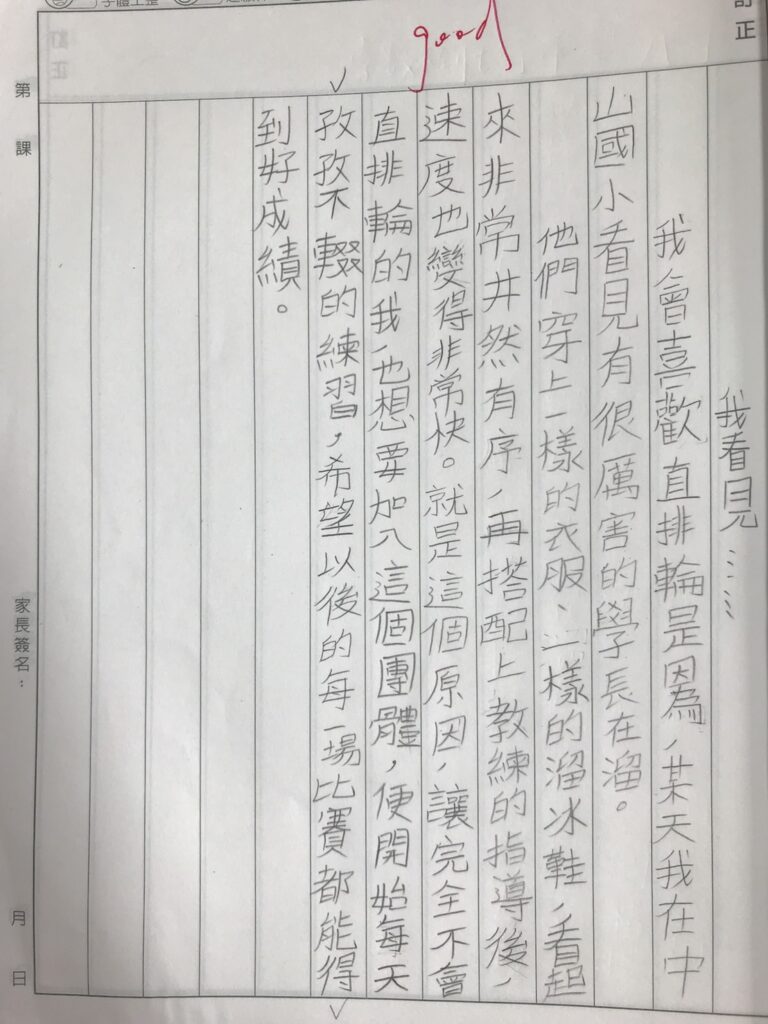 訂正
good
我看見……
我會喜歡直排輪是因為，某天我在中
山國小看見有很厲害的學長在溜。
他們穿上一樣的衣服、一樣的溜冰鞋，看起
來非常井然有序，再搭配上教練的指導後，
速度也變得非常快。就是這個原因，讓完全不會
直排輪的我，也想要加入這個團體，便開始每天
孜孜不輟的練習，希望以後的每一場比賽都能得
到好成績。
第 課
家長簽名：
月 日